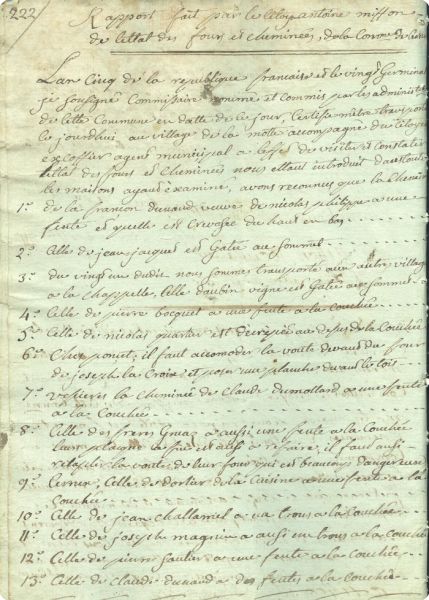 222
Rapport fait par le Citoy antoine misson
de lettat des four et cheminées, de la Comne de
Lan Cinq de la republique francaise et le vingt Germinal
je soussigné Commissaire nommé et commis par les administra
de Cette Commune en datte de ce jour, Certifie mêtre transporté
le jourdhui au village de la motte accompagné du Citoyen
excoffier agent municipal a leffet de visiter et Constater
lettat des fours et Cheminées nous ettant introduit dans toutes
les maisons ayant examiné, avons reconnus que la Cheminée
1° de la francon dunand, veuve de nicolas philippe a une
fente et quelle est Crevassée du haut en bas
2° Celle de jean jacquet est Gatée au sommet
3° du vingt un dudit nous sommes transporté aux autre village
a la Chappelle, Celle daubin vigne est Gatée au sommet
4° Celle de pierre bocquet a une fente a la Couchée
5° Celle de nicolas quartier est decrepée au desus de la Couchée
6° Chez ponet; il faut accomoder la voute devant du four
de joseph la Croix et poser une planche devant le tois
7° vettieres la cheminée de Claude dumollard a une fente
a la Couchée
8° Celle des freres Gruaz a aussi une fente a la Couchée
leur plaque la fue est aussi a refaire, il faut aussi
retablir la voute de leur four qui est beaucoup dangereux
9° Cernex; Celle de dortier de la Cuisine a une fente a la
Couchée
10° Celle de jean challamel a un trous a la Couchée
11° Celle de joseph magnin a aussi un trous a la Couchée
12° Celle de pierre Sautier a une fente a la Couchée
13° Celle de Claude dunand a des fentes a la Couchée